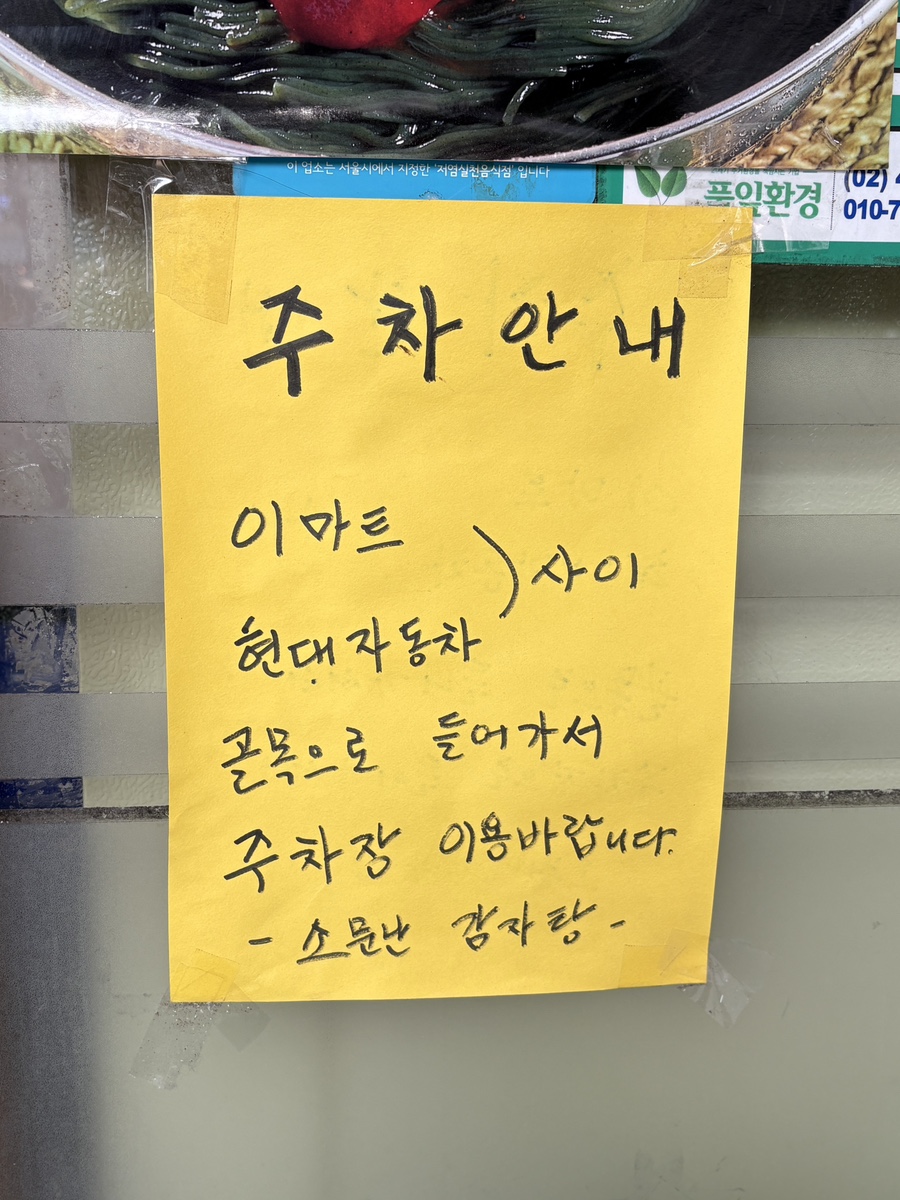 이 업소는 서울시에서 지정한 '저염실천음식점' 입니다
풀일환경
(02) 4
010-7
주차안내
이마트
현대자동차
) 사이
골목으로 들어가서
주차장 이용바랍니다.
- 소문난 감자탕 -